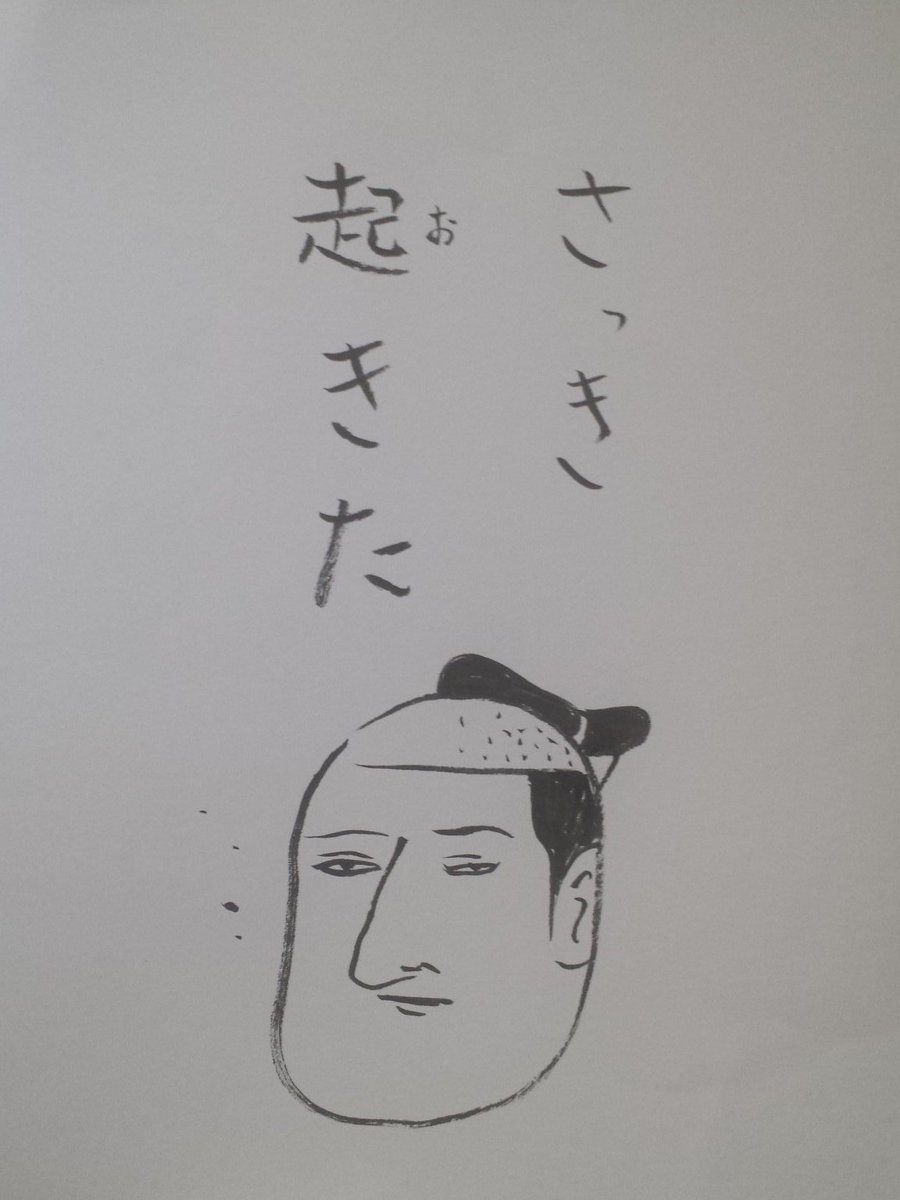 さっき
起きた
お